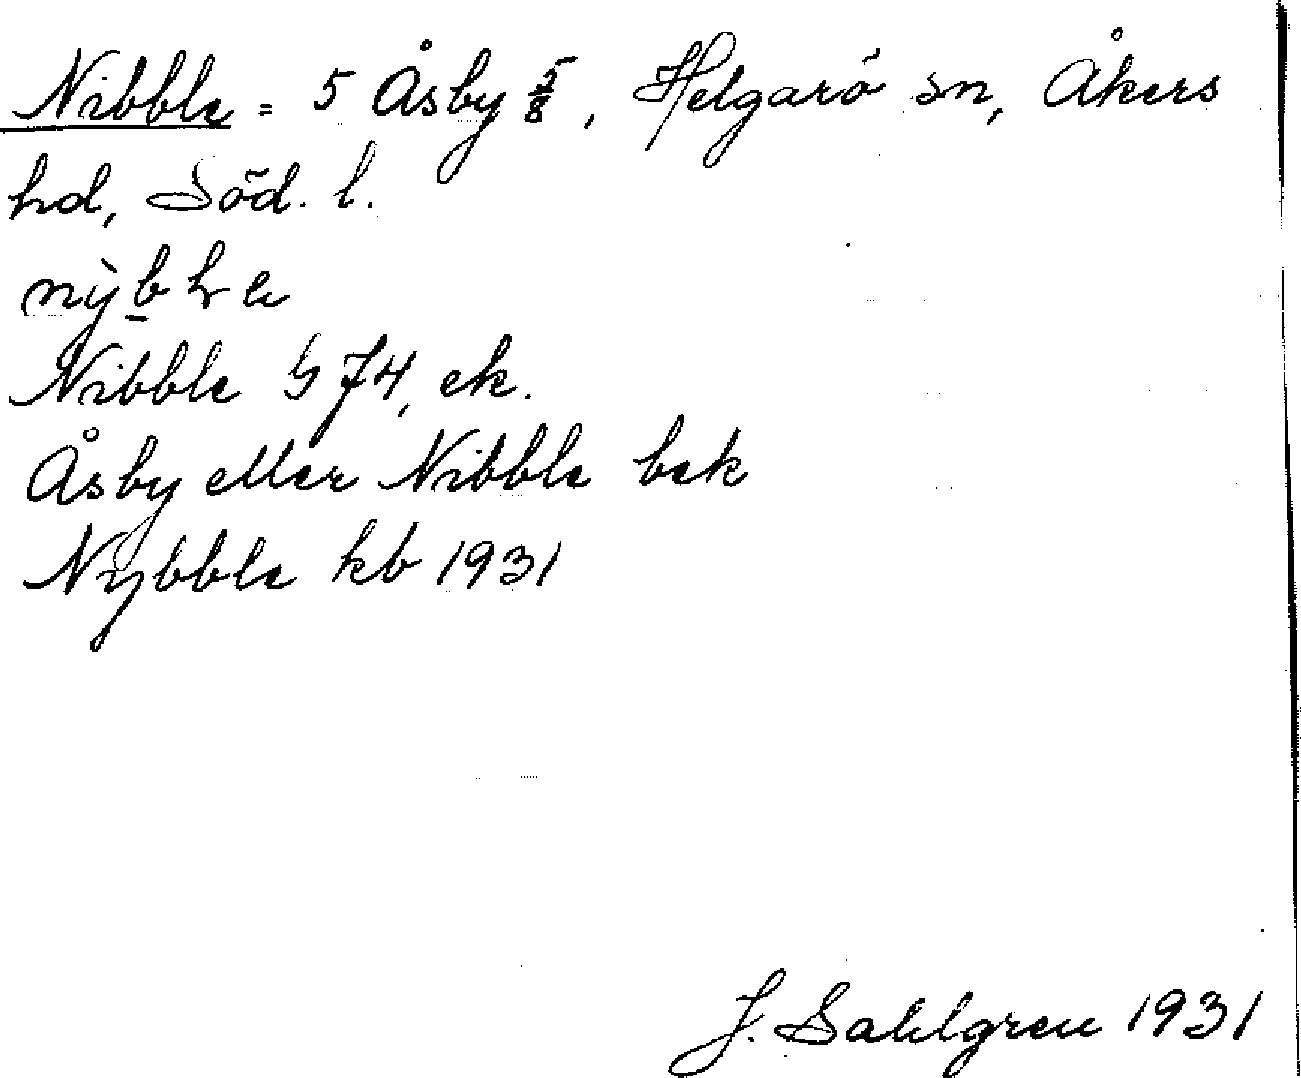 Nibble = 5 Åsby 5/8, Helgarö sn, Åkers
hd, Söd. l.
Nibble G 74, ek.
Åsby eller Nibble bek
Nybble kb 1931
J. Sahlgren 1931